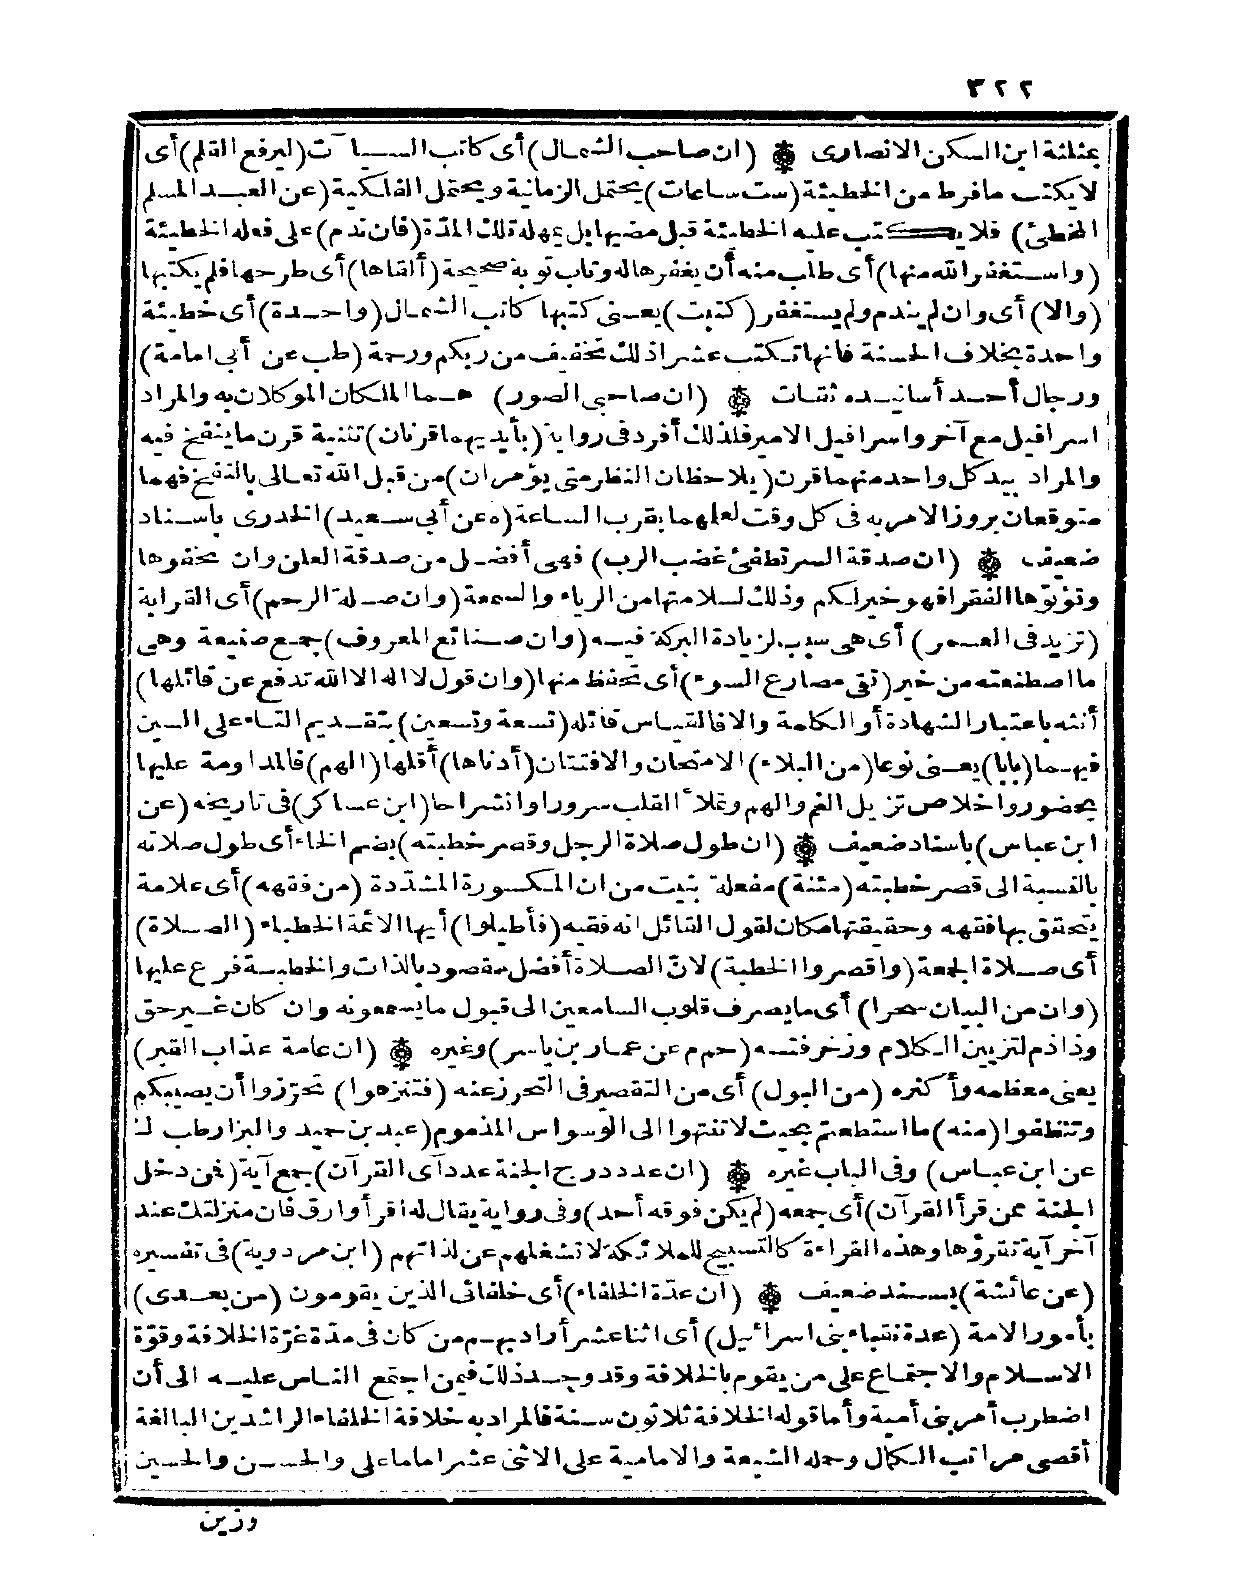 ٣٢٢
بمثلثة ابن السكن الانصارى ۞ (ان صاحب الشمال) أى كاتب السيآت (ليرفع القلم) أى
لا يكتب ما فرط من الخطيئة (ست ساعات) يحتمل الزمانية ويحتمل الفلكية (عن العبد المسلم
المخطئ) فلا يكتب عليه الخطيئة قبل مضيها بل يمهله تلك المدّة (فان ندم) على فعله الخطيئة
(واستغفر الله منها) أى طلب منه أن يغفرها له وتاب توبة صحيحة (ألقاها) أى طرحها فلم يكتبها
(والا) أى وان لم يندم ولم يستغفر (كتبت) يعنى كتبها كاتب الشمال (واحدة) أى خطيئة
واحدة بخلاف الحسنة فانها تكتب عشرا ذلك تخفيف من ربكم ورحمة (طب عن أبى امامة)
ورجال أحد أسانيده ثقات ۞ (ان صاحبى الصور) هما الملكان الموكلان به والمراد
اسرافيل مع آخر واسرافيل الامير فلذلك أفرد فى رواية (بأيديهما قرنان) تثنية قرن ما ينفخ فيه
والمراد بيد كل واحد منهما قرن (يلاحظان النظر متى يؤمران) من قبل الله تعالى بالنفخ فهما
متوقعان بروز الامر به فى كل وقت لعلهما بقرب الساعة (ه عن أبى سعيد) الخدرى باسناد
ضعيف ۞ (ان صدقة السر تطفئ غضب الرب) فهى أفضل من صدقة العلن وان تخفوها
وتؤتوها الفقرا فهو خير لكم وذلك لسلامتها من الرياء والسمعة (وان صلة الرحم) أى القرابة
(تزيد فى العمر) أى هى سبب لزيادة البركة فيه (وان صنائع المعروف) جمع صنيعة وهى
ما اصطنعته من خير (تقى مصارع السوء) أى تحفظ منها (وان قول لا اله الا الله تدفع عن قائلها)
أنثه باعتبار الشهادة أو الكلمة والا فالقياس قائله (تسعة وتسعين) بتقديم التاء على السين
فيهما (بابا) يعنى نوعا (من البلاء) الامتحان والافتتان (أدناها) أقلها (الهم) فالمداومة عليها
بحضور واخلاص تزيل الغم والهم وتملأ القلب سرورا وانشراحا (ابن عساكر) فى تاريخه (عن
ابن عباس) باسناد ضعيف ۞ (ان طول صلاة الرجل وقصر خطبته) بضم الخاء أى طول صلاته
بالنسبة الى قصر خطبته (مئنة) مفعلة بنيت من ان المكسورة المشدّدة (من فقهه) أى علامة
يتحقق بها فقهه وحقيقتها مكان لقول القائل انه فقيه (فأطيلوا) أيها الائمة الخطباء (الصلاة)
أى صلاة الجمعة (واقصروا الخطبة) لانّ الصلاة أفضل مقصود بالذات والخطبة فرع عليها
(وان من البيان سحرا) أى ما يصرف قلوب السامعين الى قبول ما يسمعونه وان كان غير حق
وذا ذم لتزيين الكلام وزخرفته (حم م عن عمار بن ياسر) وغيره ۞ (ان عامة عذاب القبر)
يعنى معظمه وأكثره (من البول) أى من التقصير فى التحرز عنه (فتنزهوا) تحرّزوا أن يصيبكم
وتنظفوا (منه) ما استطعتم بحيث لا تنتهوا الى الوسواس المذموم (عبد بن حميد والبزار طب ك
عن ابن عباس) وفى الباب غيره ۞ (ان عدد درج الجنة عدد آى القرآن) جمع آية (فمن دخل
الجنة ممن قرأ القرآن) أى جمعه (لم يكن فوقه أحد) وفى رواية يقال له اقرأ وارق فان منزلتك عند
آخر آية تقرؤها وهذه القراءة كالتسبيح للملائكة لا تشغلهم عن لذاتهم (ابن مردوية) فى تفسيره
(عن عائشة) بسند ضعيف ۞ (ان عدّة الخلفاء) أى خلفائى الذين يقومون (من بعدى)
بأمور الامة (عدة نقباء بنى اسرائيل) أى اثنا عشر أراد بهم من كان فى مدّة عزة الخلافة وقوّة
الاسلام والاجتماع على من يقوم بالخلافة وقد وجد ذلك فيمن اجتمع الناس عليه الى أن
اضطرب أمر بنى أمية وأما قوله الخلافة ثلاثون سنة فالمراد به خلافة الخلفاء الراشدين البالغة
أقصى مراتب الكمال وحمله الشيعة والامامية على الاثنى عشر اماما على والحسن والحسين
وزين